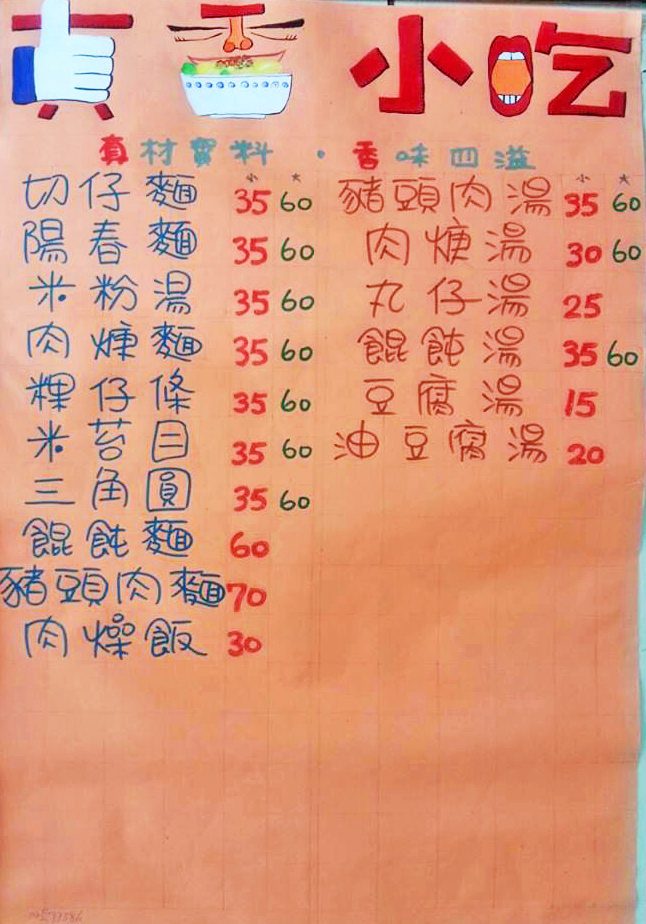 真香小吃
真材實料・香味四溢
小 大
切仔麵 35 60
陽春麵 35 60
米粉湯 35 60
肉焿麵 35 60
粿仔條 35 60
米苔目 35 60
三角圓 35 60
餛飩麵 60
豬頭肉麵 70
肉燥飯 30
小 大
豬頭肉湯 35 60
肉焿湯 30 60
丸仔湯 25
餛飩湯 35 60
豆腐湯 15
油豆腐湯 20